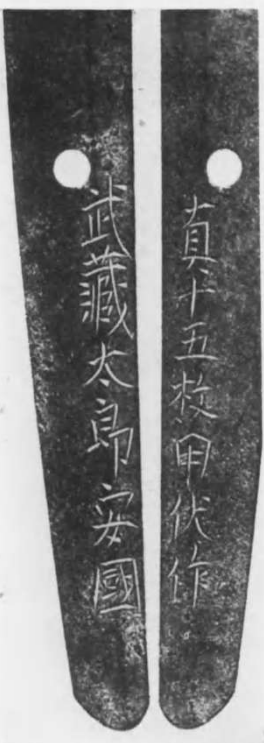 真十五枚甲伏作
武藏太郎安國